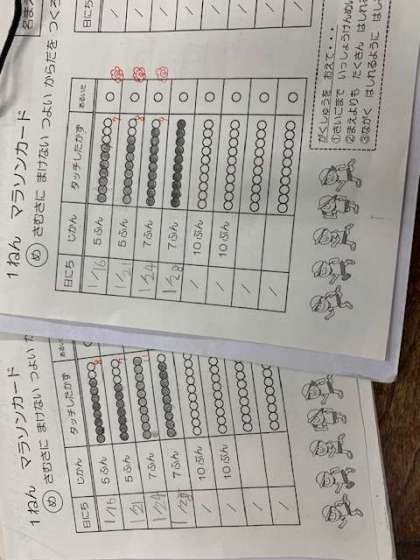 1ねん マラソンカード
め さむさに まけない つよい からだを つくろ
日にち じかん タッチしたかず
1/16 5ふん
1/21 5ふん
1/24 7ふん
1/28 7ふん
/ 10ぷん
/ 10ぷん
/
/
がくしゅうを おえて・・・
①さいごまで いっしょうけんめ
②まえよりも たくさん はしれる
③ながく はしれるように はし
日にち
1ねん マラソンカード
め さむさに まけない つよい か
日にち じかん タッチしたかず
1/16 5ふん
1/21 5ふん
1/24 7ふん
1/28 7ふん
/ 10ぷん
/ 10ぷん
/
/